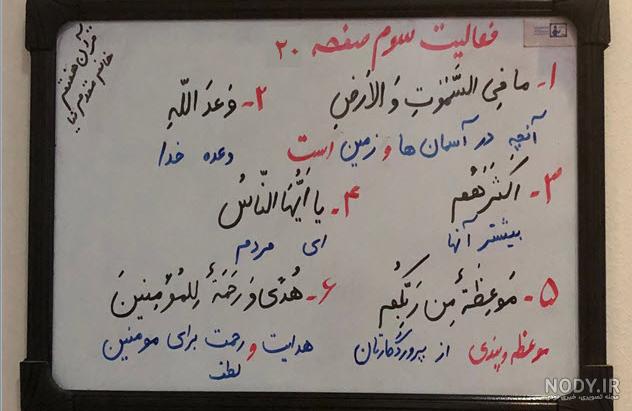 فعالیت سوم صفحه ۲۰
قرآن هفتم
۱- ما فِی السَّمٰوٰتِ وَ الاَرضِ
۲- وَعدَ اللّٰهِ
آنچه در آسمان ها و زمین است
وعده خدا
۳- اَکثَرَهُم
۴- یا اَیُّهَا النّاسُ
بیشتر آنها
ای مردم
۵- مَوعِظَةٌ مِن رَبِّکُم
۶- هُدًی وَ رَحمَةٌ لِلمُؤمِنینَ
موعظه و پندی از پروردگارتان
هدایت و رحمت برای مومنین
لطف
NODY.IR
مجله تصویری، خبری نودی